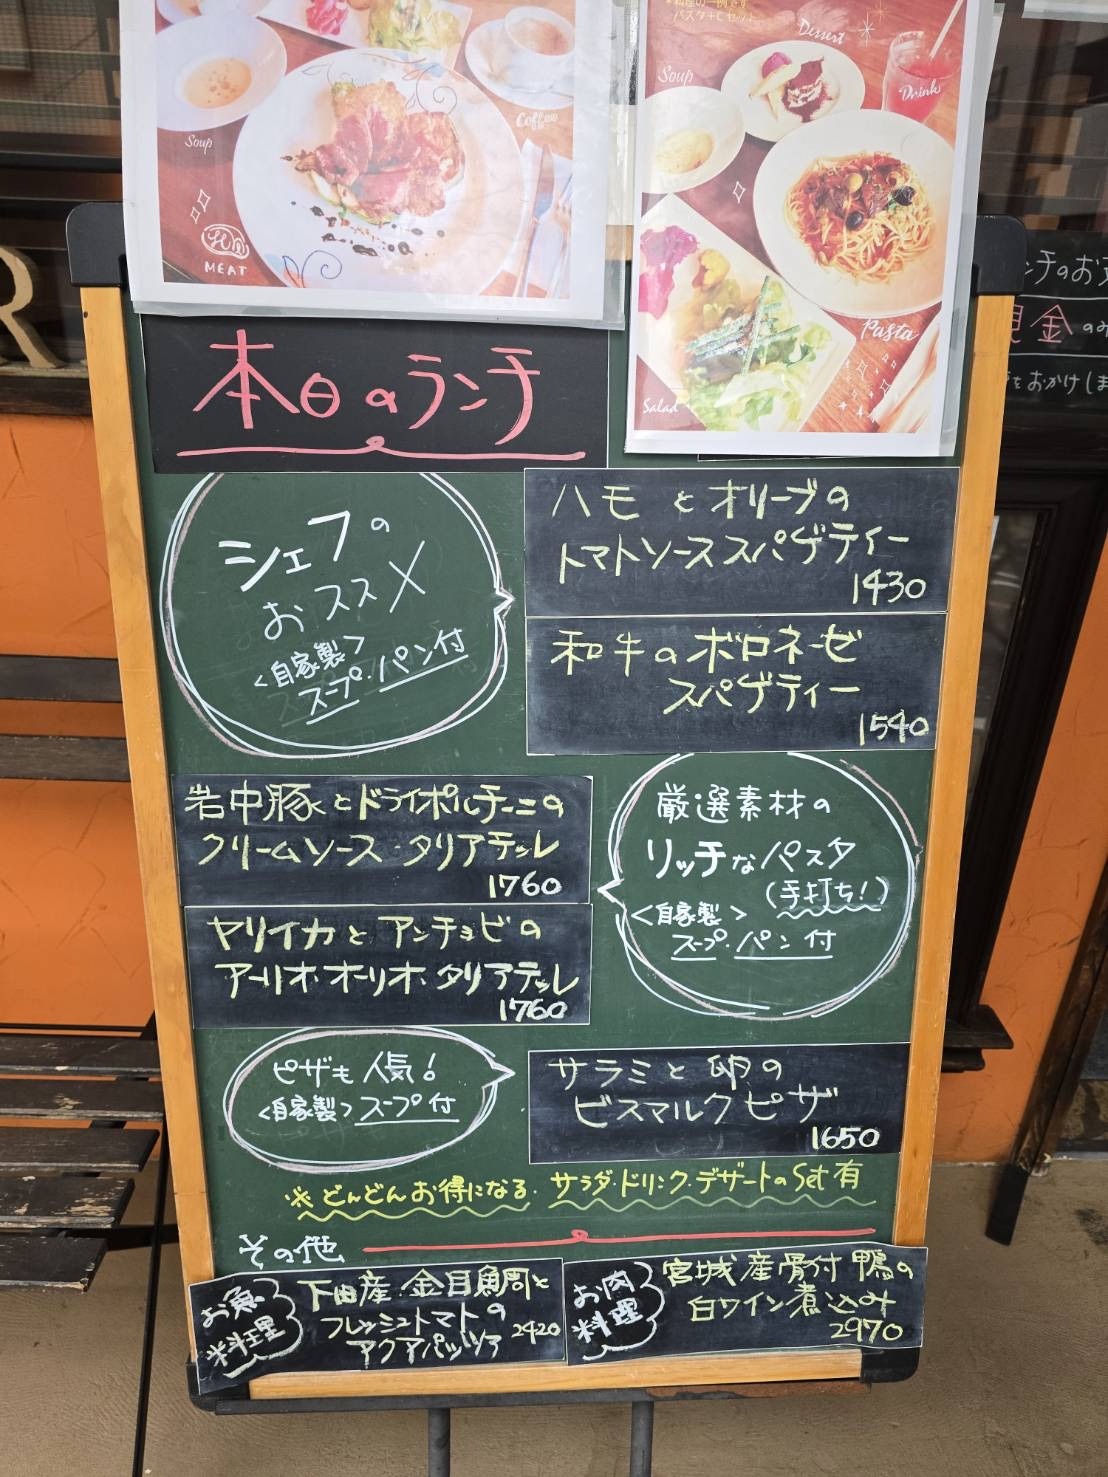 Soup
Coffee
MEAT
パスタ+Cセット
Dessert
Soup
Drink
Pasta
Salad
本日のランチ
シェフの
おススメ
<自家製>
スープ・パン付
ハモとオリーブの
トマトソーススパゲティー
1430
和牛のボロネーゼ
スパゲティー
1540
岩中豚とドライポルチーニの
クリームソース・タリアテッレ
1760
ヤリイカとアンチョビの
アーリオ・オーリオ・タリアテッレ
1760
厳選素材の
リッチなパスタ
(手打ち!)
<自家製>
スープ・パン付
ピザも人気!
<自家製>スープ付
サラミと卵の
ビスマルクピザ
1650
※どんどんお得になる・サラダ・ドリンク・デザートのSet有
その他
お魚
料理
下田産・金目鯛と
フレッシュトマトの
アクアパッツァ
2420
お肉
料理
宮城産骨付鴨の
白ワイン煮込み
2970
金のみ
をおかけしま